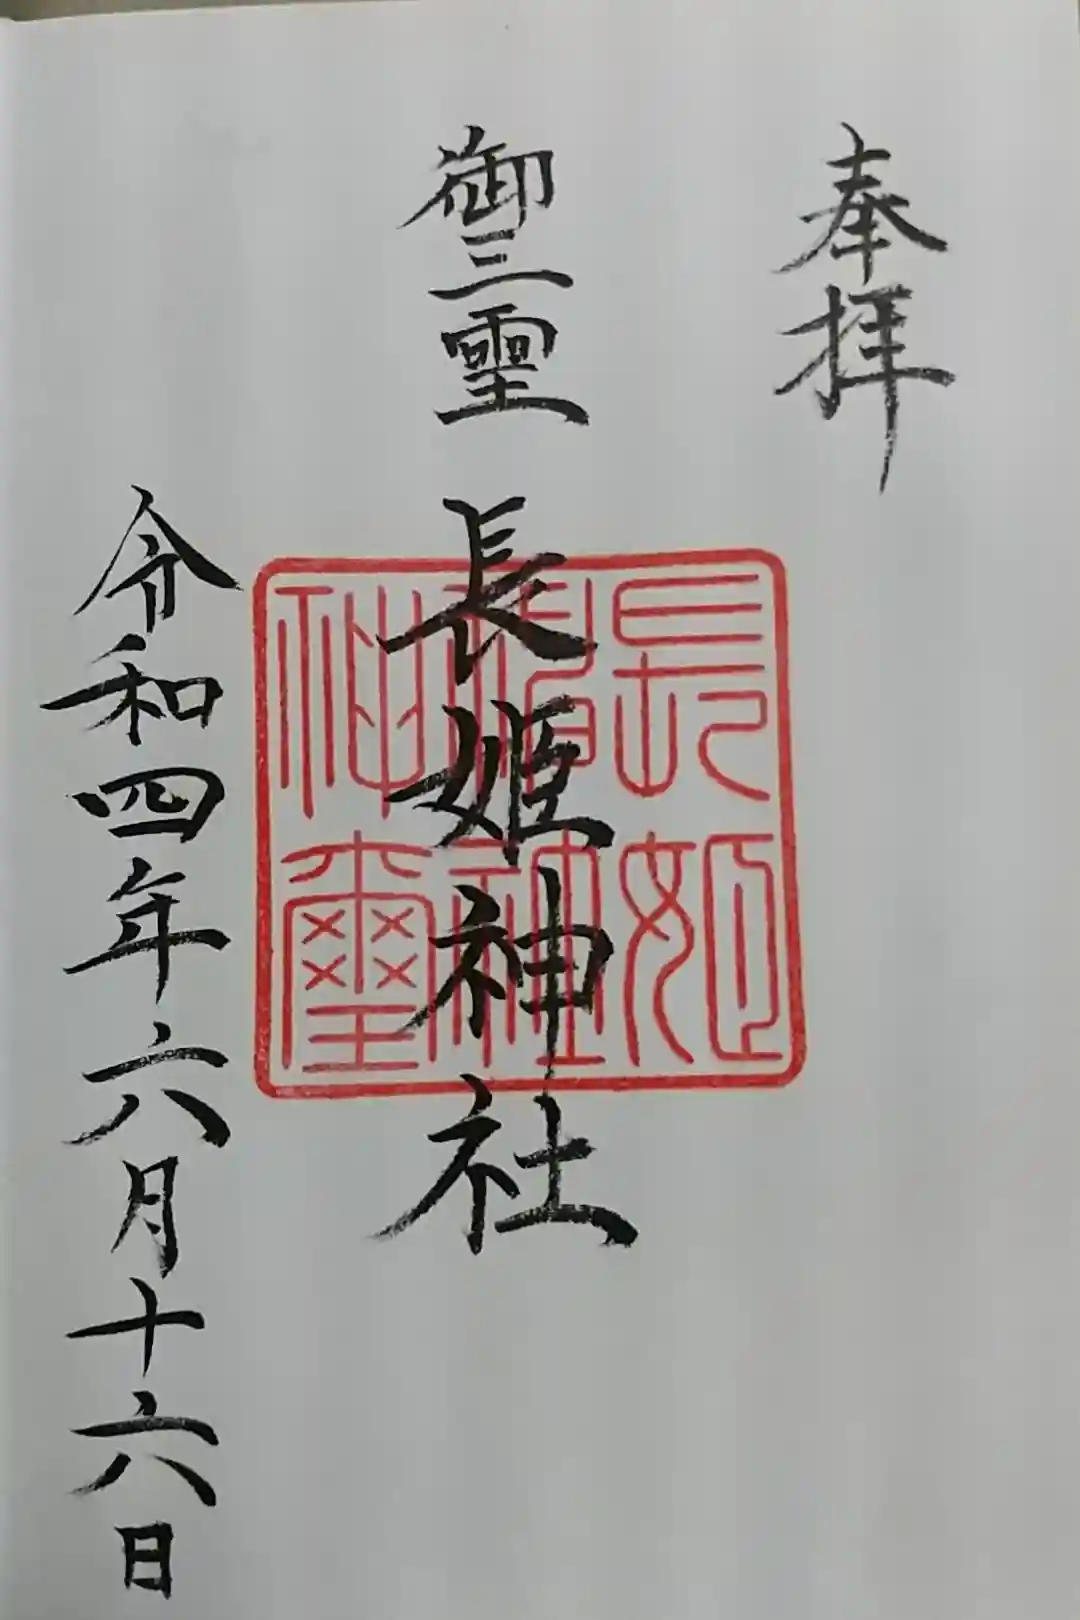 奉拝
御三霊
長姫神社
長姫稲荷神社神璽
令和四年六月十六日